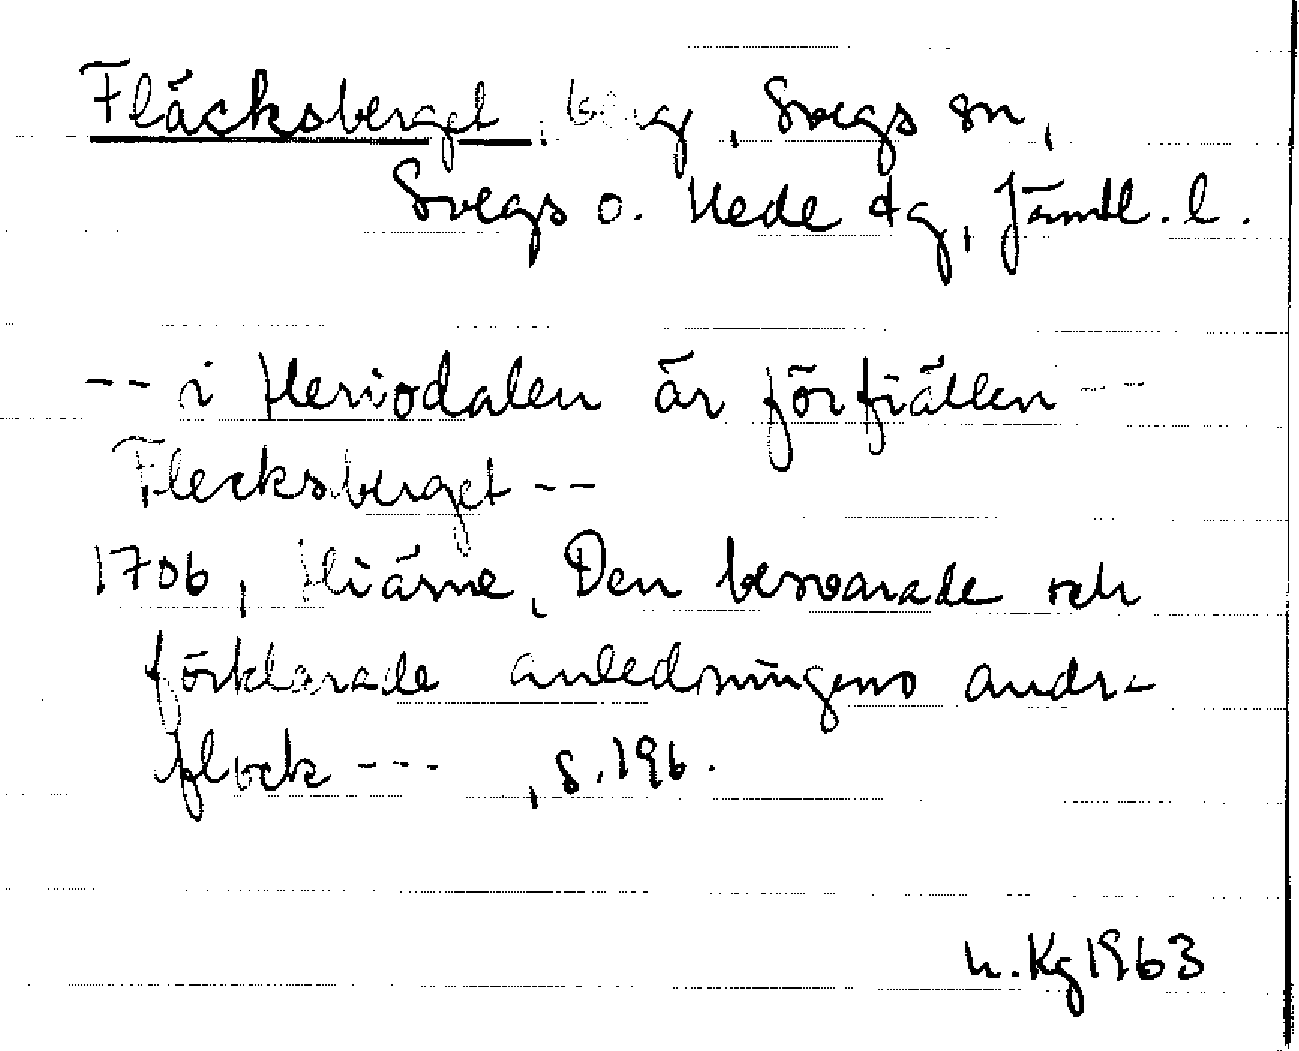 Fläcksberget, berg, Svegs sn,
Svegs o. Hede dg, Jämtl. l.
-- i Heriodalen är förfiällen --
Flecksberget --
1706, Hiärne, Den besvarade och
förklarade anledningens andra
flock --- , s. 196.
h. Kg 1963